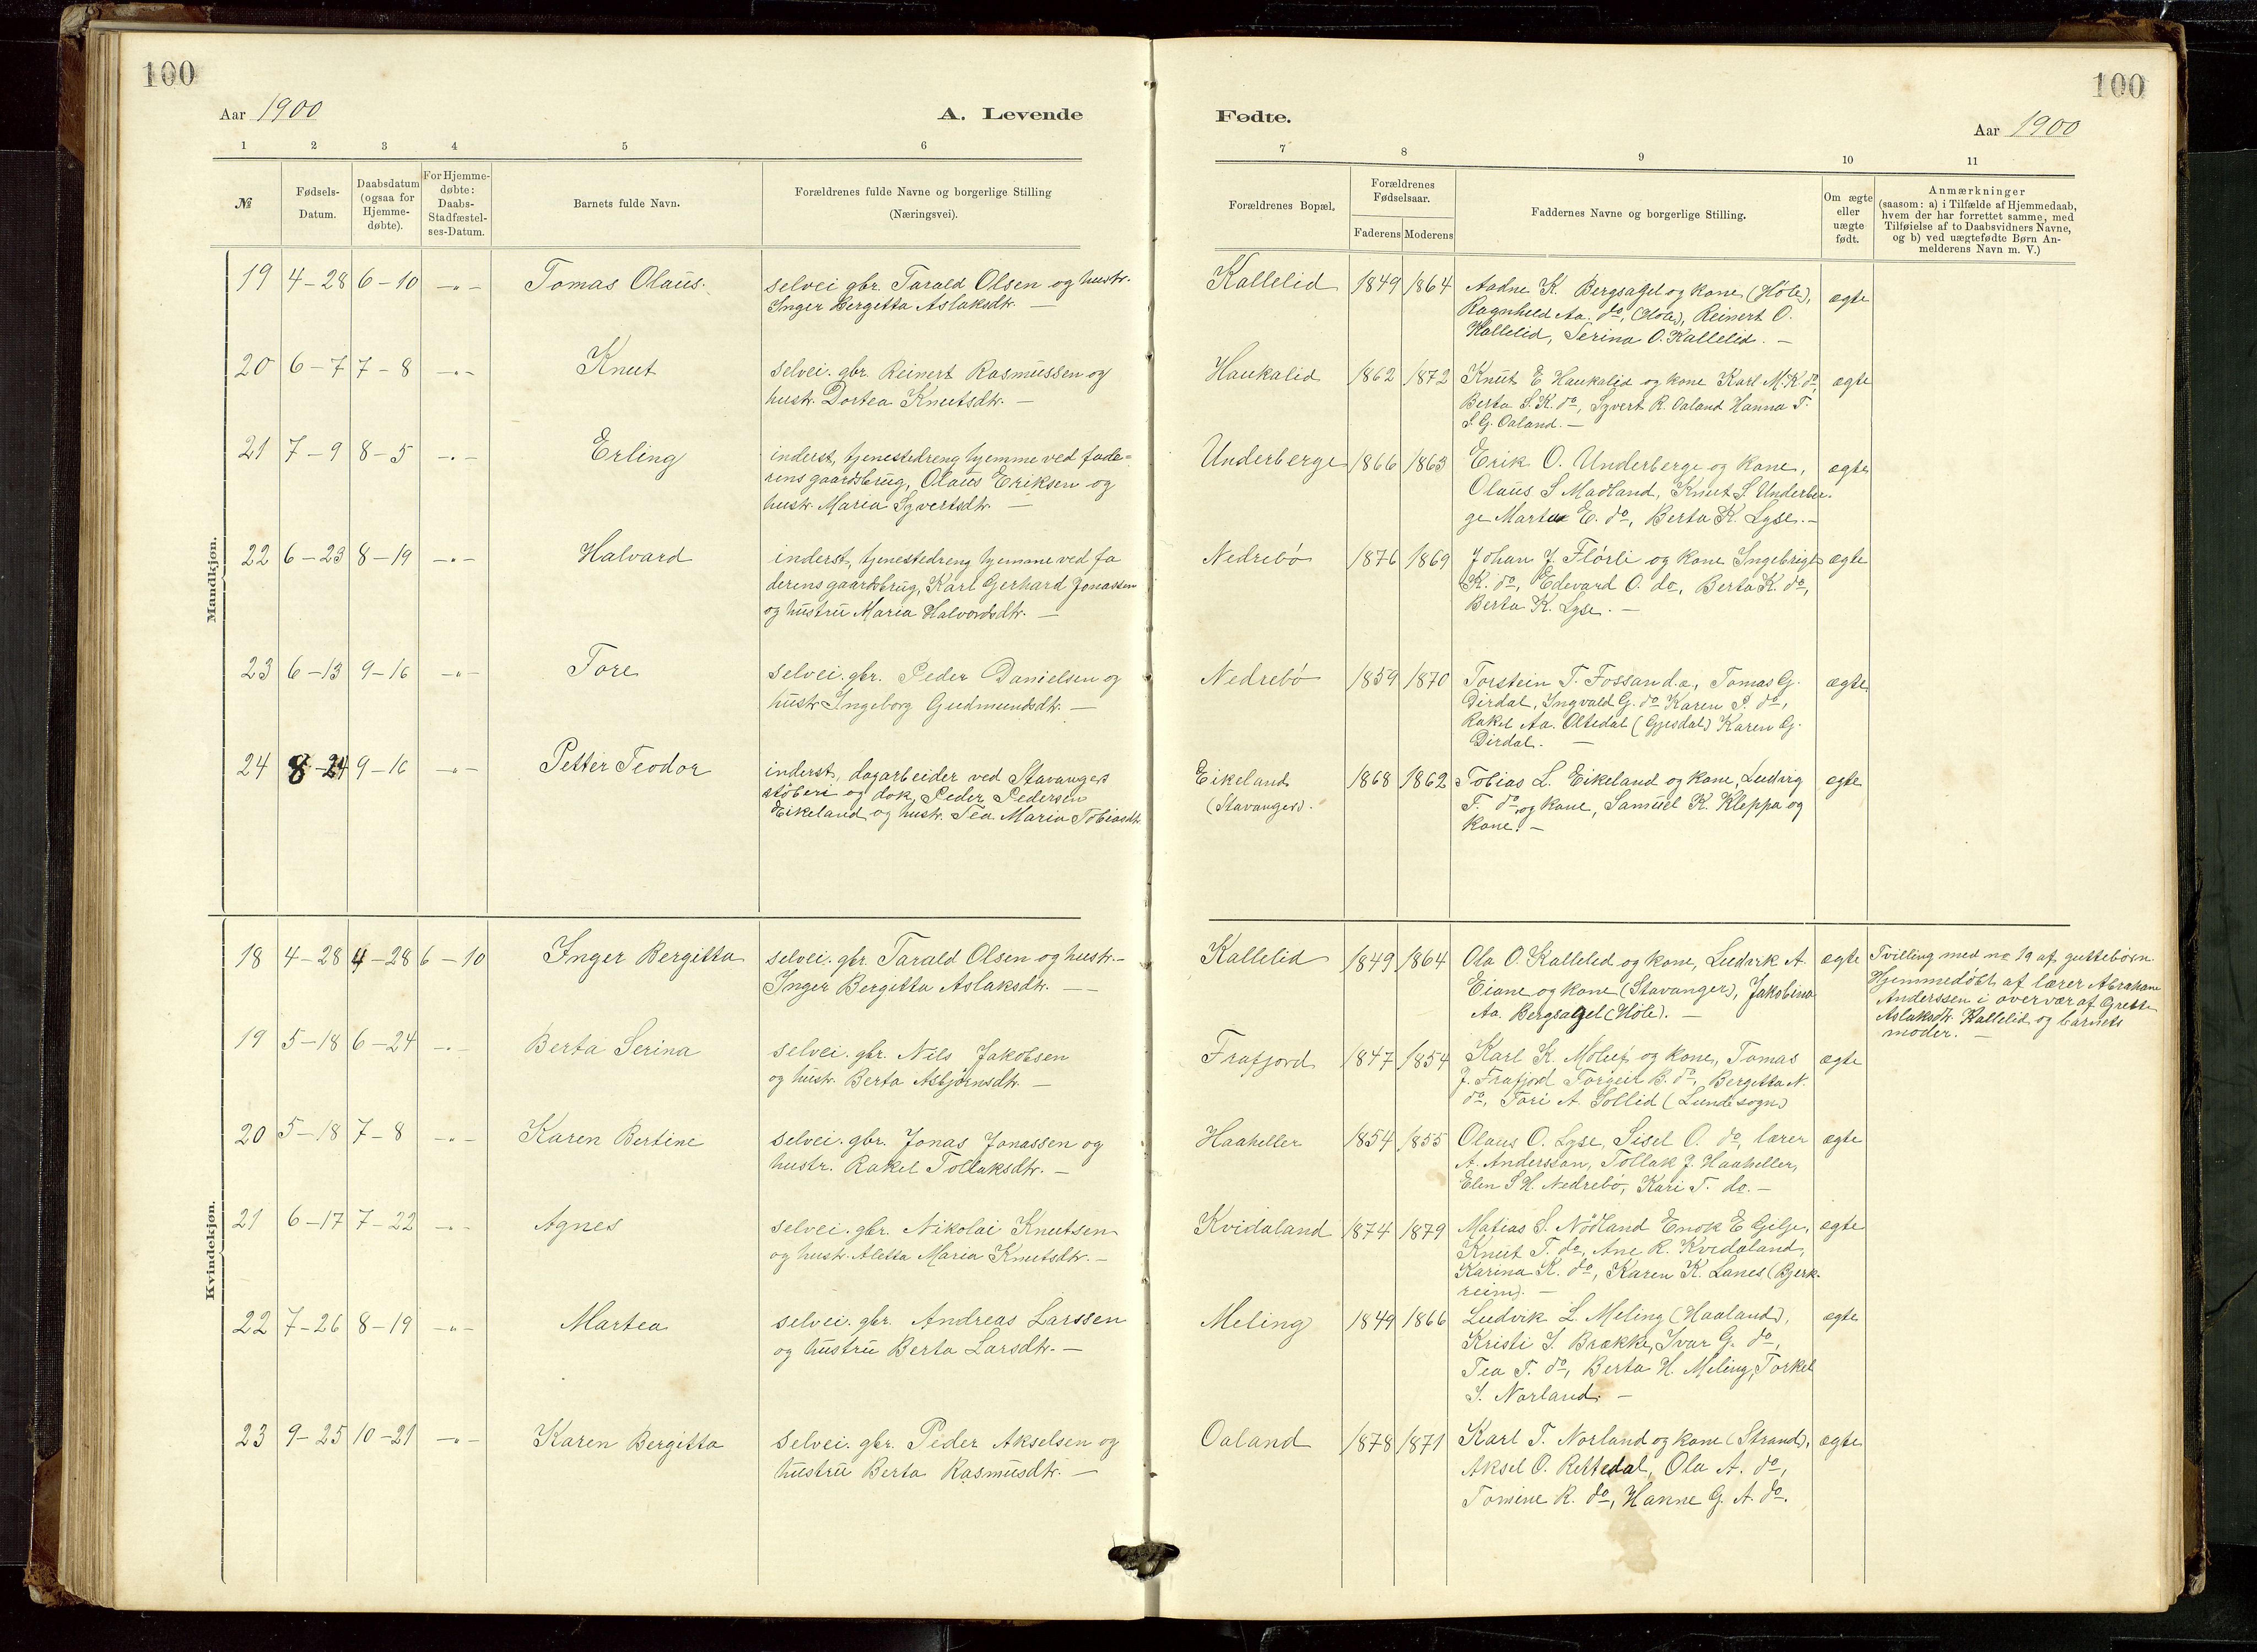 100
Aar 1900
A. Levende
1 2 3 4 5 6
№
Fødsels-
Datum.
Daabsdatum
(ogsaa for
Hjemme-
døbte).
For Hjemme-
døbte:
Daabs-
Stadfæstel-
ses-Datum.
Barnets fulde Navn.
Forældrenes fulde Navne og borgerlige Stilling
(Næringsvei).
Mandkjøn.
19 4-28 6-10 -"- Tomas Olaus. selvei gbr. Tarald Olsen og hustr.
Inger Bergitta Aslaksdtr. —
20 6-7 7-8 -"- Knut selvei. gbr. Reinert Rasmussen og
hustr. Dortea Knutsdtr. —
21 7-9 8-5 -"- Erling inderst, tjenestedreng hjemme ved fade=
rens gaardsbrug, Olaus Eriksen og
hustr. Maria Syvertsdtr. —
22 6-23 8-19 -"- Halvard inderst, tjenestedreng hjemme ved fa
derens gaardsbrug, Karl Gerhard Jonassen
og hustru Maria Halvordsdtr. —
23 6-13 9-16 -"- Tore selvei. gbr. Peder Danielsen og
hustr Ingeborg Gudmundsdtr. —
24 8-24 9-16 -"- Petter Teodor inderst, dagarbeider ved Stavanger
støberi og dok, Peder Pedersen
Eikeland og hustr. Tea Maria Tobiasdtr.
Kvindekjøn.
18 4-28 4-28 6-10 Inger Bergitta selvei. gbr. Tarald Olsen og hustr.-
Inger Bergitta Aslaksdtr. —
19 5-18 6-24 -"- Berta Serina selvei. gbr. Nils Jakobsen
og hustr. Berta Asbjørnsdtr. —
20 5-18 7-8 -"- Karen Bertine selvei. gbr. Jonas Jonassen og
hustr. Rakel Tollaksdtr. —
21 6-17 7-22 -"- Agnes selvei. gbr. Nikolai Knutsen
og hustr. Aletta Maria Knutsdtr. —
22 7-26 8-19 -"- Martea selvei. gbr. Andreas Larssen
og hustru Berta Larsdtr. —
23 9-25 10-21 -"- Karen Bergitta selvei. gbr. Peder Akselsen og
hustru Berta Rasmusdtr. —
100
Fødte.
Aar 1900
7 8 9 10 11
Forældrenes Bopæl.
Forældrenes
Fødselsaar.
Faderens Moderens
Faddernes Navne og borgerlige Stilling.
Om ægte
eller
uægte
født.
Anmærkninger
(saasom: a) i Tilfælde af Hjemmedaab,
hvem der har forrettet samme, med
Tilføielse af to Daabsvidners Navne,
og b) ved uægtefødte Børn An-
melderens Navn m. V.)
Kallelid 1849 1864 Aadne K. Bergsagel og kone (Høle), ægte
Ragnheld Aa. do, (Høle), Reinert O.
Kallelid, Serina O. Kallelid. —
Haukalid 1862 1872 Knut E Haukalid og kone Karl M. K. do, ægte
Berta S. K. do, Syvert R. Oaland Hanna T.
S. G. Oaland. —
Underberge 1866 1863 Erik O. Underberge og kone, ægte
Olaus S Madland, Knut S. Underber-
ge Martea E. do, Berta K. Lyse. —
Nedrebø 1876 1869 Johan J. Flørli og kone Ingebrigt ægte
K. do, Edevard O. do, Berta K. do,
Berta K. Lyse. —
Nedrebø 1859 1870 Torstein T. Fossand.æ, Tomas G. ægte
Dirdal, Ingvald G. do Karen P. do,
Rakel Aa. Oltedal (Gjesdal) Karen G.
Dirdal. —
Eikeland 1868 1862 Tobias L. Eikeland og kone, Ludvig ægte
(Stavanger). T. do og kone, Samuel K. Kleppa og
kone. —
Kallelid 1849 1864 Ola O. Kallelid og kone, Ludvik A. ægte Tvilling med no 19 af guttebørn
Eiane og kone (Stavanger), Jakobina Hjemmedøbt af lærer Abraham
Aa. Bergsagel (Høle). — Anderssen i overvær af Grette
Aslaksdtr. Kallelid og barnets
moder. —
Frafjord 1847 1854 Karl K. Molauf og kone, Tomas ægte
J. Frafjord Torgeir B. do, Bergitta N.
do, Tori A. Sollid (Lundesogn)
Haaheller 1854 1855 Olaus O. Lyse, Sisel O. do, lærer ægte
A. Anderssen, Tollak J. Haaheller,
Elen S H. Nedrebø, Kari T. do. —
Kvidaland 1874 1879 Matias S. Nødland Enok E Gilje, ægte
Knut T. do, Ane R. Kvidaland,
Karina K. do, Karen K. Lanes (Bjerk-
reim). —
Meling 1849 1866 Ludvik L. Meling (Haaland), ægte
Kristi I. Brække, Ivar G. do,
Tea T. do, Berta H. Meling, Torkel
I. Norland. —
Oaland 1878 1871 Karl T. Norland og kone (Strand), ægte
Aksel O. Rettedal, Ola A. do,
Tomine R. do, Hanne G. A. do.